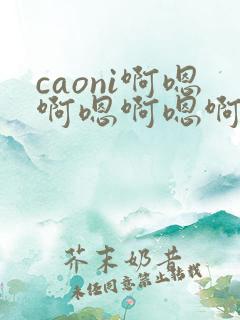 caoni啊嗯
啊嗯啊嗯啊
芥末奶昔
未经同意禁止转载